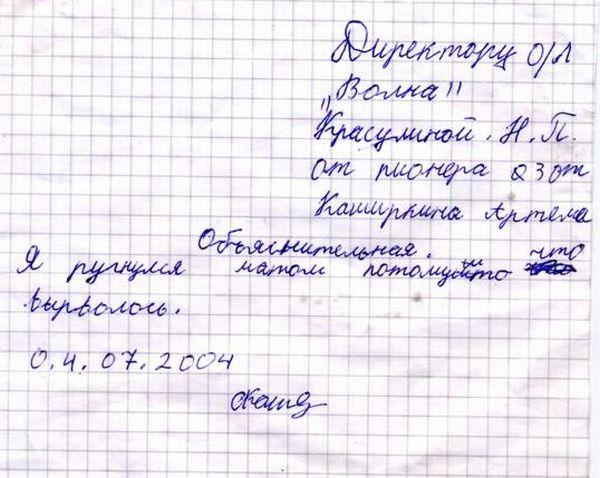 Директору О/Л
"Волна"
Красулиной. Н.П.
от пионера 23 от
Каширкина Артема
Объяснительная.
Я ругнулся матом потомушто что
вырволось.
0.4.07.2004